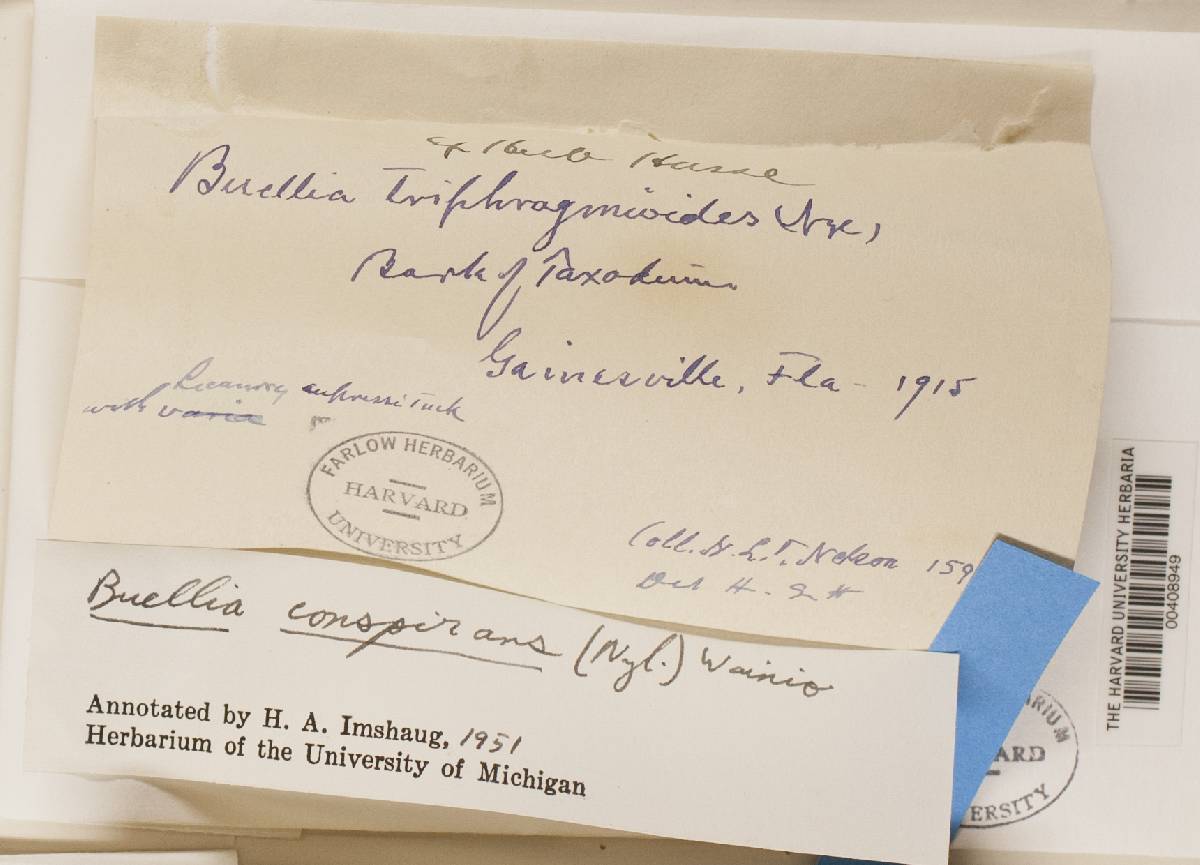 ex Herb Hasse
Buellia triphragmioides Nyl,
Bark of Taxodium
Gainesville, Fla - 1915
Lecanora cupressi Tuck
with varia
FARLOW HERBARIUM
HARVARD
UNIVERSITY
Coll. N. L. T. Nelson 159
Det H. E. H
Buellia conspirans (Nyl.) Wainio
Annotated by H. A. Imshaug, 1951
Herbarium of the University of Michigan
THE HARVARD UNIVERSITY HERBARIA
00408949
RIUM
ARD
ERSITY